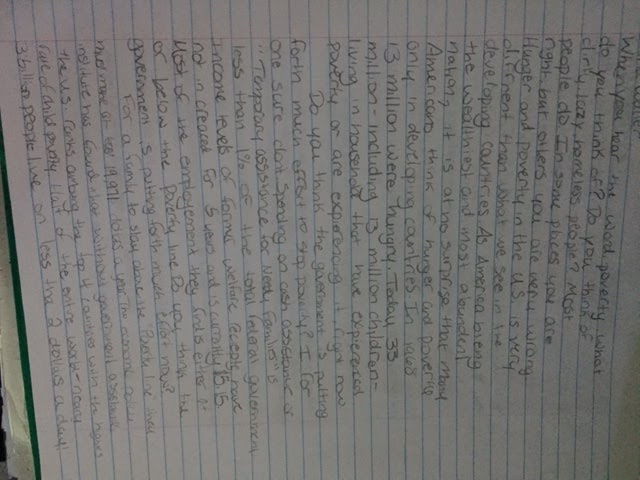 When you hear the word poverty, what
do you think of? Do you think of
dirty, lazy homeless people? Most
people do. In some places you are
right but others you are very wrong
Hunger and poverty in the U.S. is very
diffrent than what we see in the
developing countries. As America bieng
the wealthiest and most abundent
nation, it is at no surprise that many
Americans think of hunger and poverty
only in developing countries. In 1968
13 million were hungry. Today 33
million - including 13 million children -
living in household that have expierenced
poverty or are expiriencing it right now
Do you think the government is putting
forth much effort to stop poverty? I for
one sure dont. Spending on cash assistance or
"Temporary assistance for Needy Families" is
less than 1% of the total federal government
Income levels of former welfare recepts have
not in creased for 5 years and is currently 5.15.
Most of the employement they find is either at
or below the poverty line. Do you think the
government is putting forth much effort now?
For a family to stay above the Poverty line they
must make at
institute has found that without government assistance
the U.S. ranks among the top 4 countries with the highest
rate of child poverty. Half of the entire world - nearly
3 billion people live on less than 2 dollars a day!